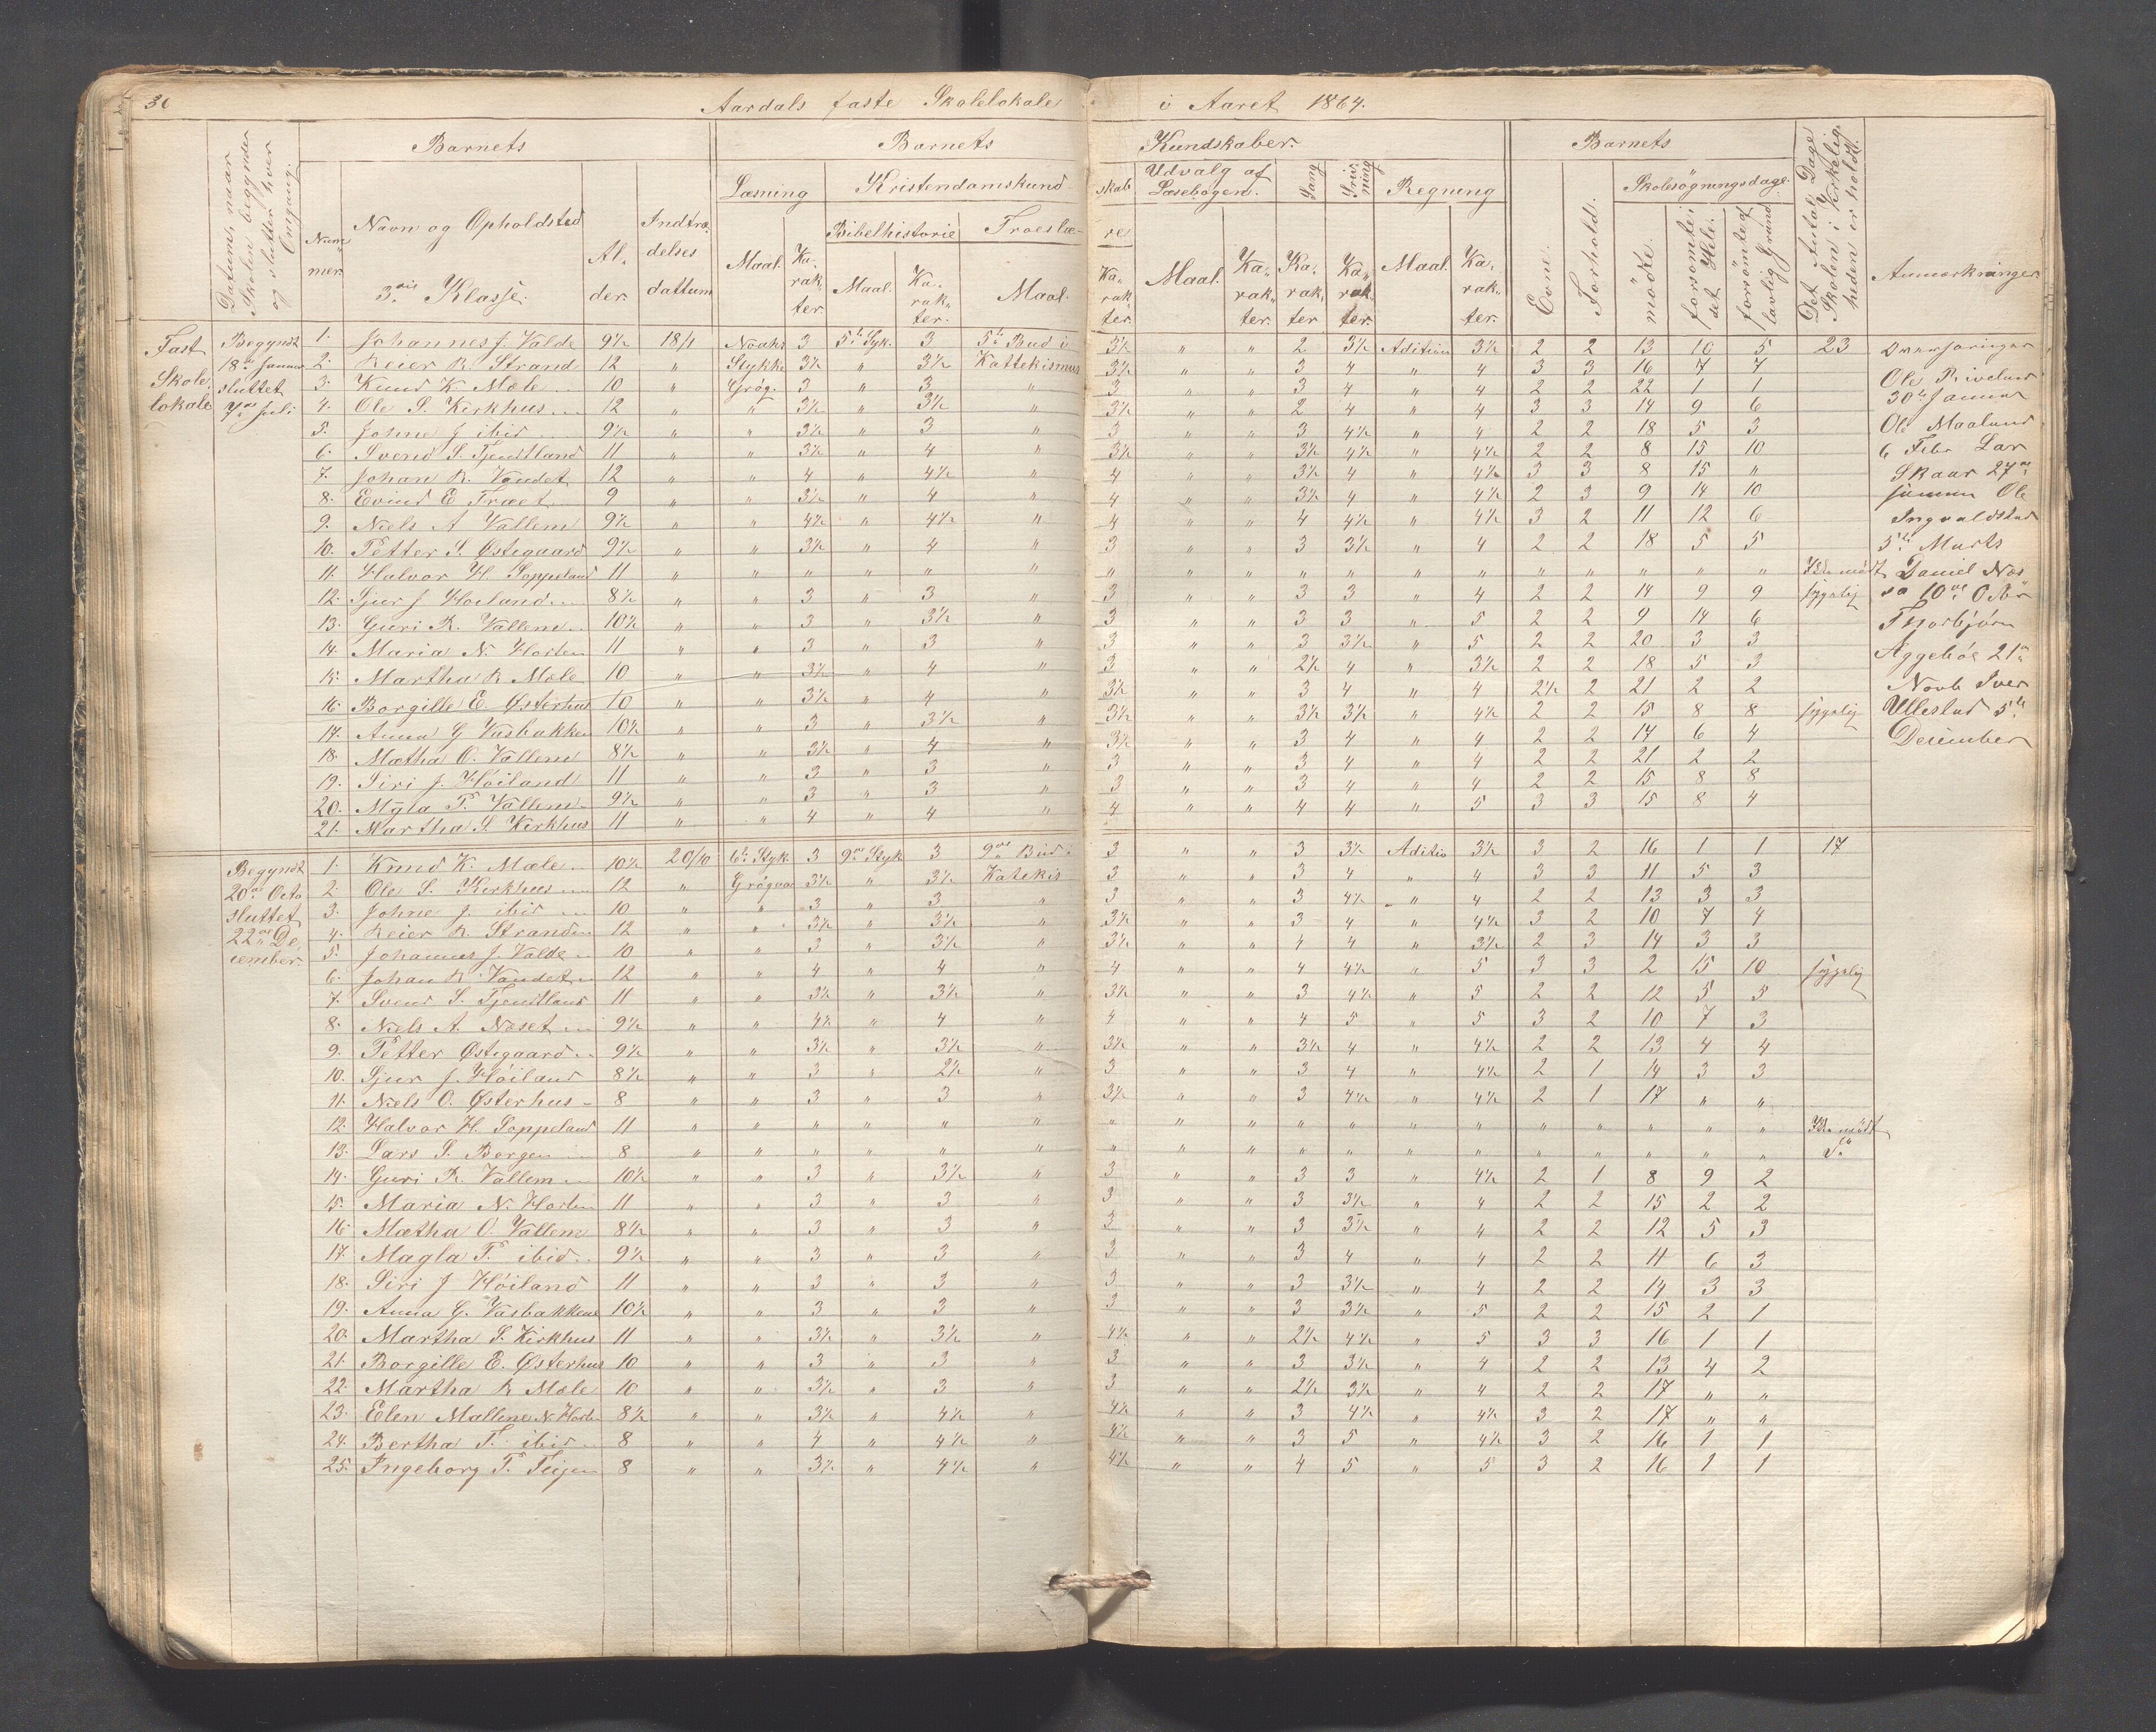 36 Aardals faste Skolelokale i Aaret 1864.
Datum, naar Skolen begynder og slutter hver Omgang.
Barnets
Nummer.
Navn og Opholdsted
3die Klasse.
Alder.
Indtrædelses dattum
Barnets Kundskaber.
Læsning
Maal. Karakter.
Kristendomskundskab
Bibelhistorie
Maal. Karakter.
Troeslære
Maal. Karakter.
Udvalg af Læsebogen.
Maal. Karakter.
Sang Karakter
Skrivning Karakter.
Regning
Maal. Karakter.
Barnets
Evne.
Forhold.
Skolesögningsdage.
mödte.
forsömte i det Hele.
forsömte af lovlig Grund
Det Antal Dage Skolen i Virkelig heden er holdt.
Anmærkninger
Fast Skole lokale
Begyndt 18de Januar sluttet 7de Juli
1. Johannes J. Valde 9½ 18/1 Noahs 3 5te Syk. 3 5te Bud i 3½ " " 2 3½ Adition 3½ 2 2 13 10 5 23
2. Reier R. Strand 12 " Stykke 3½ " 3½ Kattekismus 3½ " " 3 4 " 4 3 3 16 7 7
3. Knud K. Mæle 10 " Grøg. 3 " 3 " 3 " " 3 4 " 4 2 2 22 1 1
4. Ole S. Kirkhus 12 " " 3½ " 3½ " 3½ " " 2 4 " 4 3 3 14 9 6
5. Johne J. ibid 9½ " " 3½ " 3 " 3 " " 3 4½ " 4 2 2 18 5 3
6. Svend S. Tjentland 11 " " 3½ " 4 " 3½ " " 3½ 4½ " 4½ 2 2 8 15 10
7. Johan R. Vandet 12 " " 4 " 4½ " 4 " " 3½ 4 " 4½ 3 3 8 15 "
8. Evind E Træet 9 " " 3½ " 4 " 4 " " 3½ 4 " 4½ 2 3 9 14 10
9. Niels A Vallem 9½ " " 4½ " 4½ " 4 " " 4 4½ " 4½ 3 2 11 12 6
10. Petter S. Østegaard 9½ " " 3½ " 4 " 3 " " 3 3½ " 4 2 2 18 5 5
11. Halvor H. Soppeland 11 " " " " " " " " " " " " " " " " " "
12. Sjur J Høiland 8½ " " 3 " 3 " 3 " " 3 3 " 4 2 2 14 9 9 sygelig
13. Guri R. Vallem 10½ " " 3 " 3½ " 3 " " 3 3 " 5 2 2 9 14 6
14. Maria N. Horten 11 " " 3 " 3 " 3 " " 3 3½ " 5 2 2 20 3 3
15. Martha R Mæle 10 " " 3½ " 4 " 3 " " 2½ 4 " 3½ 2 2 18 5 3
16. Borgille E. Østerhus 10 " " 3½ " 4 " 3½ " " 3 4 " 4 2½ 2 21 2 2
17. Anna G Vasbakken 10½ " " 3 " 3½ " 3½ " " 3½ 3½ " 4½ 2 2 15 8 8 sygelig
18. Mætha O. Vallem 8½ " " 3½ " 4 " 3½ " " 3 4 " 4 2 2 17 6 4
19. Siri J. Høiland 11 " " 3 " 3 " 3 " " 3 4 " 4 2 2 21 2 2
20. Mgla T. Vallem 9½ " " 3 " 3 " 3 " " 3 4 " 4 2 2 15 8 8
21. Martha S. Kirkhus 11 " " 4 " 4 " 4 " " 4 4 " 5 3 3 15 8 4
Ole Riveland
30te Januar
Ole Maaland
6 Febr Lar
Skaar 27de
Ole
Ingvaldstad
5te Marts
Daniel Næs
10de Octbr
Thorbjørn
Aggebøe 21de
Novb Iver
Ullestad 5te
December
Begyndt 20de Octo sluttet 22de December.
1. Knud K. Mæle 10½ 20/10 6te Styk. 3 9de Styk 3 9de Bud i 3 " " 3 3½ Aditio 3½ 3 2 16 1 1 17
2. Ole S. Kirkhus 12 " Grøgaa 3½ " 3½ Katekis 3 " " 3 4 " 4 3 3 11 5 3
3. Johne J. ibid 10 " " 3 " 3 " 3 " " 3 4½ " 4 2 2 13 3 3
4. Reier R. Strand 12 " " 3½ " 3½ " 3½ " " 3 4 " 4½ 3 2 10 7 4
5. Johannes J. Valde 10 " " 3 " 3½ " 3½ " " 4 4 " 3½ 2 3 14 3 3
6. Johan R. Vandet 12 " " 4 " 4 " 4 " " 4 4½ " 5 3 3 2 15 10 sygelig
7. Svend S. Tjentland 11 " " 3½ " 3½ " 3½ " " 3 4½ " 5 2 2 12 5 5
8. Niels A. Næset 9½ " " 4½ " 4 " 4 " " 4 5 " 5 3 2 10 7 3
9. Petter Østegaard 9½ " " 3½ " 3½ " 3½ " " 3½ 4 " 4½ 2 2 13 4 4
10. Sjur J. Høiland 8½ " " 3 " 2½ " 3 " " 3 4 " 4½ 2 1 14 3 3
11. Niels O. Østerhus 8 " " 3 " 3 " 3½ " " 3 4½ " 4½ 2 1 17 " "
12. Halvor H. Soppeland 11 " " " " " " " " " " " " " " " " " "
13. Lars S. Borgen 8 " " " " " " " " " " " " " " " " " "
14. Guri R. Vallem 10½ " " 3 " 3½ " 3 " " 3 3 " 4½ 2 1 8 9 2
15. Maria N. Horten 11 " " 3 " 3 " 3 " " 3 3½ " 4 2 2 15 2 2
16. Mætha O. Vallem 8½ " " 3 " 3 " 3 " " 3 3½ " 4 2 2 12 5 3
17. Magla T. ibid 9½ " " 3 " 3 " 3 " " 3 4 " 4 2 2 11 6 3
18. Siri J Høiland 11 " " 3 " 3 " 3 " " 3 3½ " 4 2 2 14 3 3
19. Anna G. Vasbakkene 10½ " " 3 " 3 " 3 " " 3 3½ " 5 2 2 15 2 1
20. Martha S. Kirkhus 11 " " 3½ " 3½ " 4½ " " 2½ 4½ " 5 3 3 16 1 1
21. Borgille E. Østerhus 10 " " 3 " 3 " 3 " " 3 3½ " 4 2 2 13 4 2
22. Martha R Mæle 10 " " 3½ " 3 " 3 " " 2½ 3½ " 4 2 2 17 " "
23. Elen Mallene N. Horte 8½ " " 3½ " 4½ " 4½ " " 3 4½ " 4½ 3 2 17 " "
24. Bertha T. ibid 8 " " 4 " 4½ " 4½ " " 3 5 " 4½ 3 2 16 1 1
25. Ingeborg T. Teigen 8 " " 3½ " 4½ " 4½ " " 4 5 " 5 3 2 16 1 1